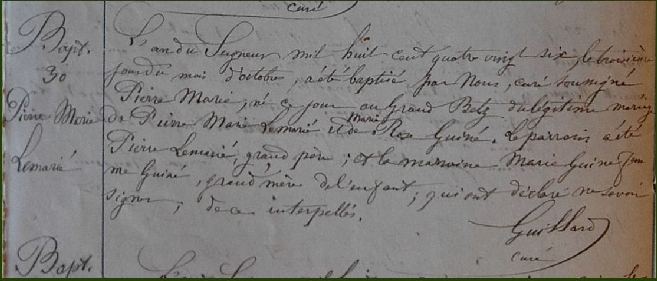 curé
Bapt.
30
Pierre Marie
Lemarié
L'an du Seigneur mil huit cent quatre vingt six le troisième
jour du mois d'octobre, a été baptisé par Nous, curé soussigné
Pierre Marie, né ce jour au Grand Betz du légitime mariage
de Pierre Marie Lemarié et de Marie Rose Guiné. Le parrain a été
Pierre Lemarié, grand père ; et la marraine Marie Guiné fem
me Guiné, grand'mère de l'enfant ; qui ont déclaré ne savoir
signer, de ce interpellés.
Guillard
curé
Bapt.